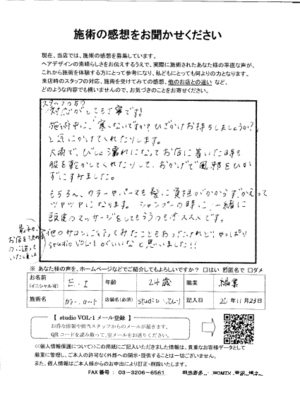 施術の感想をお聞かせください
現在、当店では、施術の感想を募集しています。
ヘアデザインの素晴らしさをお伝えするうえで、実際に施術されたあなた様の率直な声が、
これから施術を体験する方にとって参考になり、私どもにとっても何よりの力となります。
来店時のスタッフの対応、施術を受けてみての感想、他のお店との違い など、
どのような内容でも構いませんので、お気づきのことをお寄せください。
スタッフの方々
対応がとても丁寧です!
施術中に、「寒くないですか?ひざかけお持ちしましょうか?」
と気にかけてくれたりします。
大雨で、びしょ濡れになってお店に着いた時も
服を乾かしてくれたりして、おかげで風邪をひか
ずにすみました。
もちろん、カラーやパーマも髪に負担がかからず
ツヤツヤになります。シャンプーの時に、一緒に
頭皮のマッサージをしてもらうのが
他のサロンに
studio VOL-1がいいなと思いました!!
※ あなた様の声を、ホームページなどでご紹介してもよろしいですか? □はい □匿名で □ダメ
お名前 (イニシャル可) E・I 年齢 24歳 職業
施術名 カラー、カット 店舗名(必須) studio VOL-1 記入日 26年11月23日
【 studio VOL-1 メール登録 】
お得な情報や担当スタッフからのメールが届きます。
QRコードを読み取って、空メールをお送りください。
<個人情報保護について>この用紙にご記入いただきました情報は、貴重なお客様データとして
厳重に管理し、ご本人の許可なく外部への開示・提供することは一切ございません。
また、個人情報はご本人様からのお申出により訂正・削除いたします。
FAX番号 : 03-3206-6561